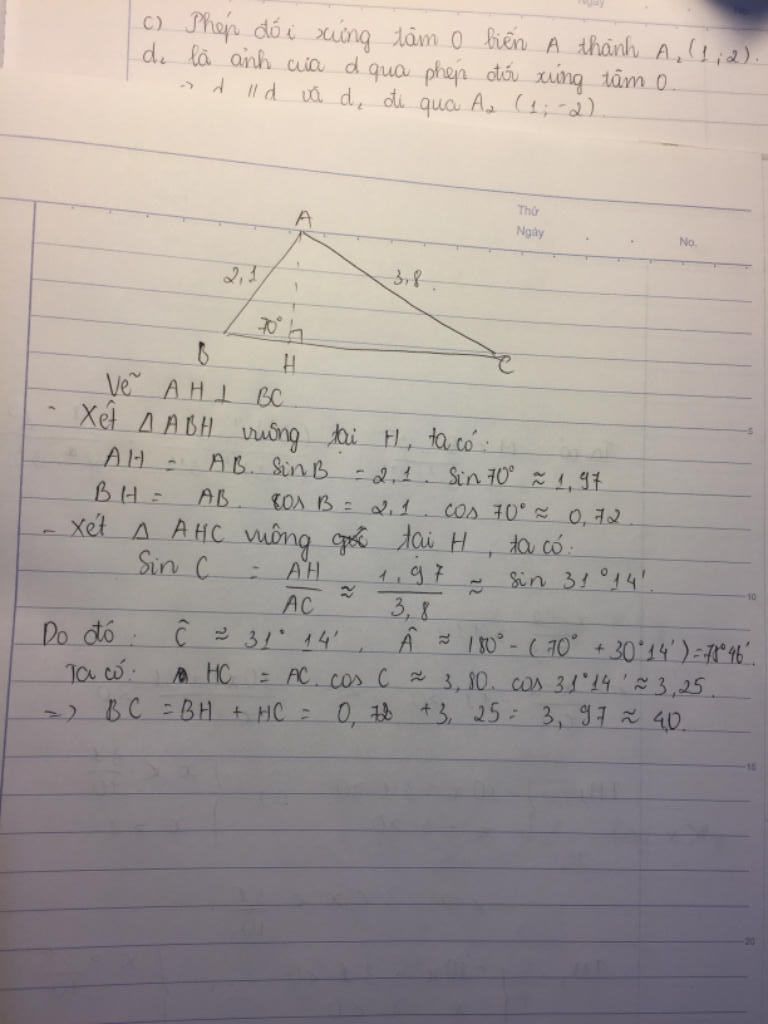 c) Phép đối xứng tâm O biến A thành A₂ (1;2).
d₂ là ảnh của d qua phép đối xứng tâm O.
→ d // d và d₂ đi qua A₂ (1;-2).
Thứ
Ngày
No.
A
2,1
3,8.
70°
B
H
C
Vẽ AH ⊥ BC
- Xét Δ ABH vuông tại H, ta có:
AH = AB. sinB = 2,1. sin70° ≈ 1,97
BH = AB. cosB = 2,1. cos 70° ≈ 0,72.
- Xét Δ AHC vuông tại H, ta có:
Sin C = AH/AC ≈ 1,97/3,8 ≈ sin 31°14'.
Do đó: Ĉ ≈ 31°14', Â ≈ 180° - (70° + 30°14') = 78°46'.
Ta có: HC = AC. cos C ≈ 3,80. cos 31°14' ≈ 3,25.
=> BC = BH + HC = 0,72 + 3,25 = 3,97 ≈ 4,0.
5
10
15
20